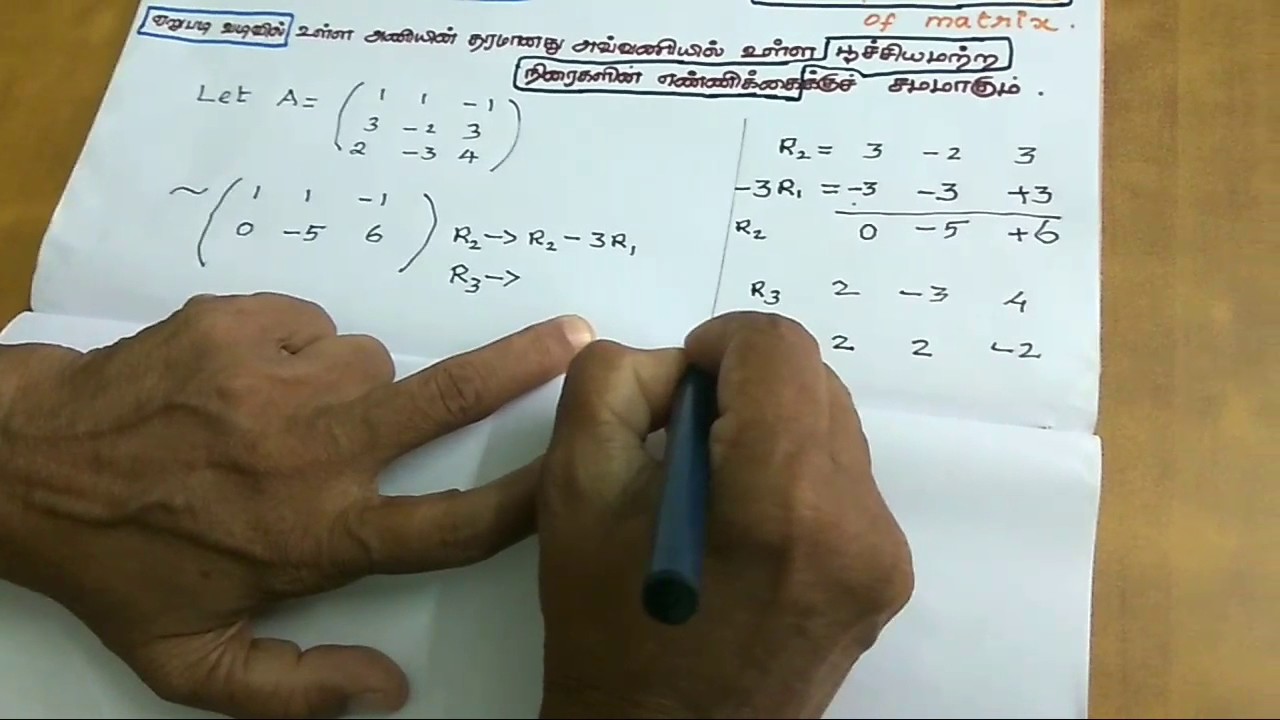 of matrix.
ஏறுபடி வடிவில் உள்ள அணியின் தரமானது அவ்வணியில் உள்ள பூச்சியமற்ற
நிரைகளின் எண்ணிக்கைக்குச் சமமாகும்.
Let A = ( 1 1 -1
3 -2 3
2 -3 4 )
~ ( 1 1 -1
0 -5 6 ) R₂ -> R₂ - 3R₁
R₃ ->
R₂ = 3 -2 3
-3R₁ = -3 -3 +3
R₂ 0 -5 +6
R₃ 2 -3 4
2 2 -2